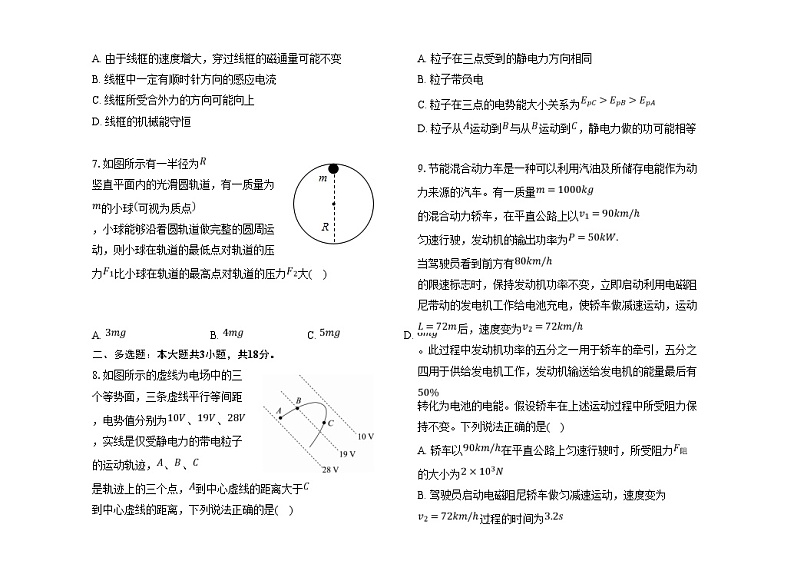 A. 由于线框的速度增大，穿过线框的磁通量可能不变
B. 线框中一定有顺时针方向的感应电流
C. 线框所受合外力的方向可能向上
D. 线框的机械能守恒
7. 如图所示有一半径为R
竖直平面内的光滑圆轨道，有一质量为
m的小球(可视为质点)
，小球能够沿着圆轨道做完整的圆周运
动，则小球在轨道的最低点对轨道的压
力F₁比小球在轨道的最高点对轨道的压力F₂大( )
m
R
A. 3mg B. 4mg C. 5mg D. 6mg
二、多选题：本大题共3小题，共18分。
8. 如图所示的虚线为电场中的三
个等势面，三条虚线平行等间距
，电势值分别为10V、19V、28V
，实线是仅受静电力的带电粒子
的运动轨迹，A、B、C
是轨迹上的三个点，A到中心虚线的距离大于C
到中心虚线的距离，下列说法正确的是( )
A
B
C
10 V
19 V
28 V
A. 粒子在三点受到的静电力方向相同
B. 粒子带负电
C. 粒子在三点的电势能大小关系为E_{pC} > E_{pB} > E_{pA}
D. 粒子从A运动到B与从B运动到C，静电力做的功可能相等
9. 节能混合动力车是一种可以利用汽油及所储存电能作为动
力来源的汽车。有一质量m = 1000kg
的混合动力轿车，在平直公路上以v₁ = 90km/h
匀速行驶，发动机的输出功率为P = 50kW.
当驾驶员看到前方有80km/h
的限速标志时，保持发动机功率不变，立即启动利用电磁阻
尼带动的发电机工作给电池充电，使轿车做减速运动，运动
L = 72m后，速度变为v₂ = 72km/h
。此过程中发动机功率的五分之一用于轿车的牵引，五分之
四用于供给发电机工作，发动机输送给发电机的能量最后有
50%
转化为电池的电能。假设轿车在上述运动过程中所受阻力保
持不变。下列说法正确的是( )
A. 轿车以90km/h在平直公路上匀速行驶时，所受阻力F阻
的大小为2 × 10³N
B. 驾驶员启动电磁阻尼轿车做匀减速运动，速度变为
v₂ = 72km/h过程的时间为3.2s